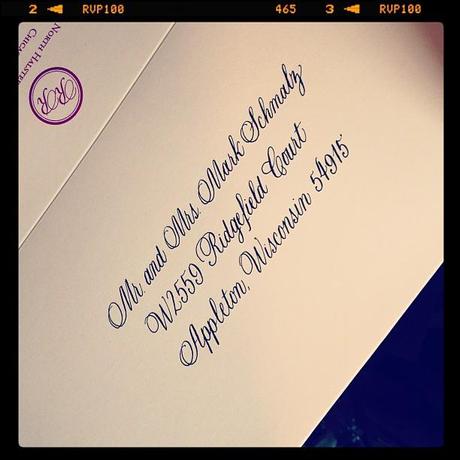 2 RVP100 465 3 RVP100
North Halste
Chica
RR
Mr. and Mrs. Mark Schmalz
W2559 Ridgefield Court
Appleton, Wisconsin 54915